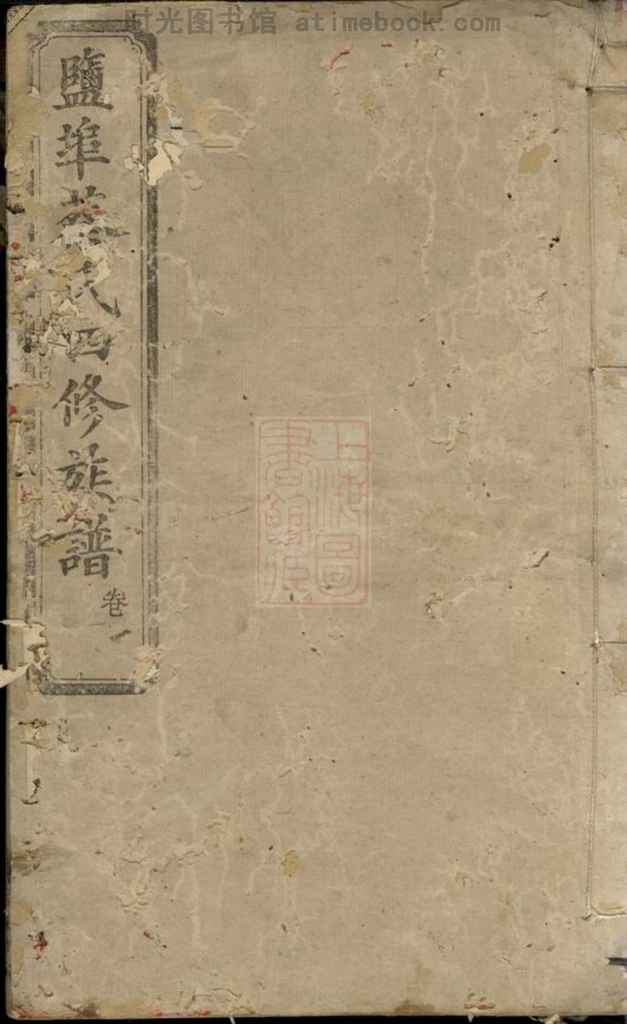 时光图书馆 atimebook.com
鹽埠氏四修族譜
卷一
上海圖
書館藏